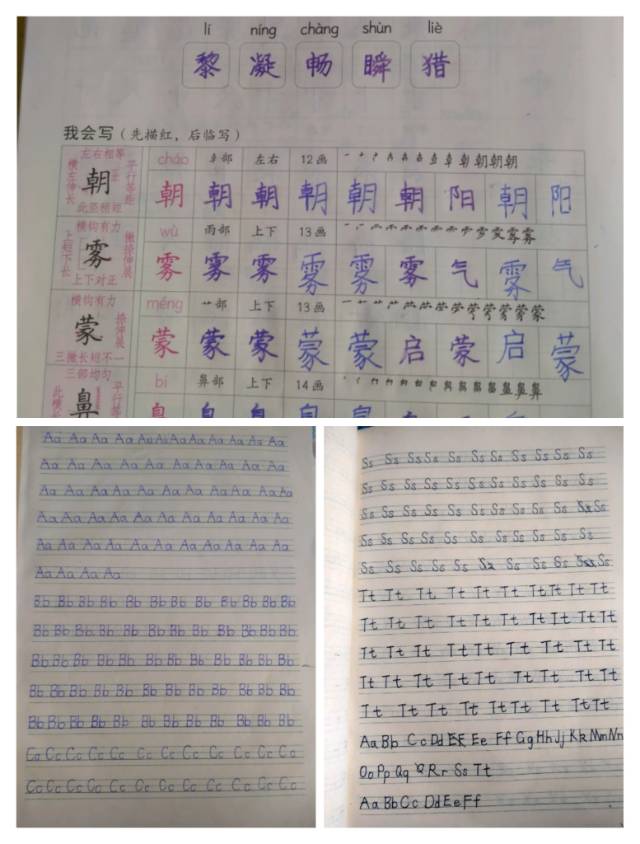 lí níng chàng shùn liè
黎 凝 畅 瞬 猎
我会写（先描红，后临写）
左右相等
横左伸长
朝
平行等距
此竖稍短
cháo 部 左右 12画
朝 朝 朝 朝 朝 朝 阳 朝 阳
横钩有力
上短下长
雾
撇捺伸展
上下对正
wù 雨部 上下 13画
雾 雾 雾 雾 雾 雾 气 雾 气
横钩有力
蒙
捺伸展
三撇长短不一
méng 艹部 上下 13画
蒙 蒙 蒙 蒙 蒙 启 蒙 启 蒙
三部均匀
此横长
鼻
平行等
bí 鼻部 上下 14画
Aa Aa Aa Aa Aa Aa Aa Aa Aa Aa Aa Aa
Aa Aa Aa Aa Aa Aa Aa Aa Aa Aa
Aa Aa Aa Aa Aa Aa Aa Aa Aa Aa Aa
Aa Aa Aa Aa Aa Aa Aa Aa Aa Aa
Aa Aa Aa Aa Aa Aa Aa Aa Aa Aa
Aa Aa Aa Aa
Bb Bb Bb Bb Bb Bb Bb Bb Bb Bb Bb Bb
Bb Bb Bb Bb Bb Bb Bb Bb Bb Bb Bb Bb
Bb Bb Bb Bb Bb Bb Bb Bb Bb Bb Bb Bb
Bb Bb Bb Bb Bb Bb Bb Bb Bb Bb Bb
Bb Bb Bb Bb Bb Bb Bb Bb Bb Bb Bb
Cc Cc Cc Cc Cc Cc Cc Cc Cc Cc Cc Cc
Cc Cc Cc Cc Cc Cc Cc Cc Cc Cc Cc Cc
Ss Ss Ss Ss Ss Ss Ss Ss Ss Ss Ss
Ss Ss Ss Ss Ss Ss Ss Ss Ss Ss Ss
Ss Ss Ss Ss Ss Ss Ss Ss Ss Ss Ss
Ss Ss Ss Ss Ss Ss Ss Ss Ss Ss
Ss Ss Ss Ss Ss Ss Ss Ss Ss Ss
Tt Tt Tt Tt Tt Tt Tt Tt Tt Tt
Tt Tt Tt Tt Tt Tt Tt Tt Tt Tt
Tt Tt Tt Tt Tt Tt Tt Tt Tt Tt
Tt Tt Tt Tt Tt Tt Tt Tt Tt
Tt Tt Tt Tt Tt Tt Tt Tt Tt
Aa Bb Cc Dd Ee Ff Gg Hh Jj Kk Mm Nn
Oo Pp Qq Rr Ss Tt
Aa Bb Cc Dd Ee Ff